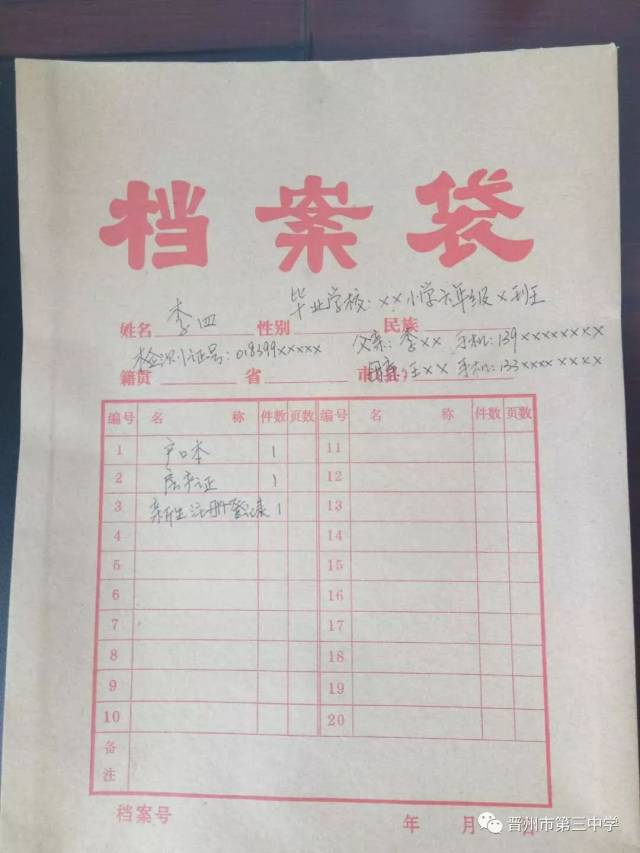 档案袋
毕业学校：××小学六年级×班
姓名 李四 性别 民族
检测证号：018399××××× 父亲：李×× 手机：139××××××××
籍贯 省 市 母亲：王×× 手机：133××××××××
编号 名称 件数 页数 编号 名称 件数 页数
1 户口本 1 11
2 房产证 1 12
3 新生注册登记表 1 13
4 14
5 15
6 16
7 17
8 18
9 19
10 20
备注
档案号 年 月 日
晋州市第三中学